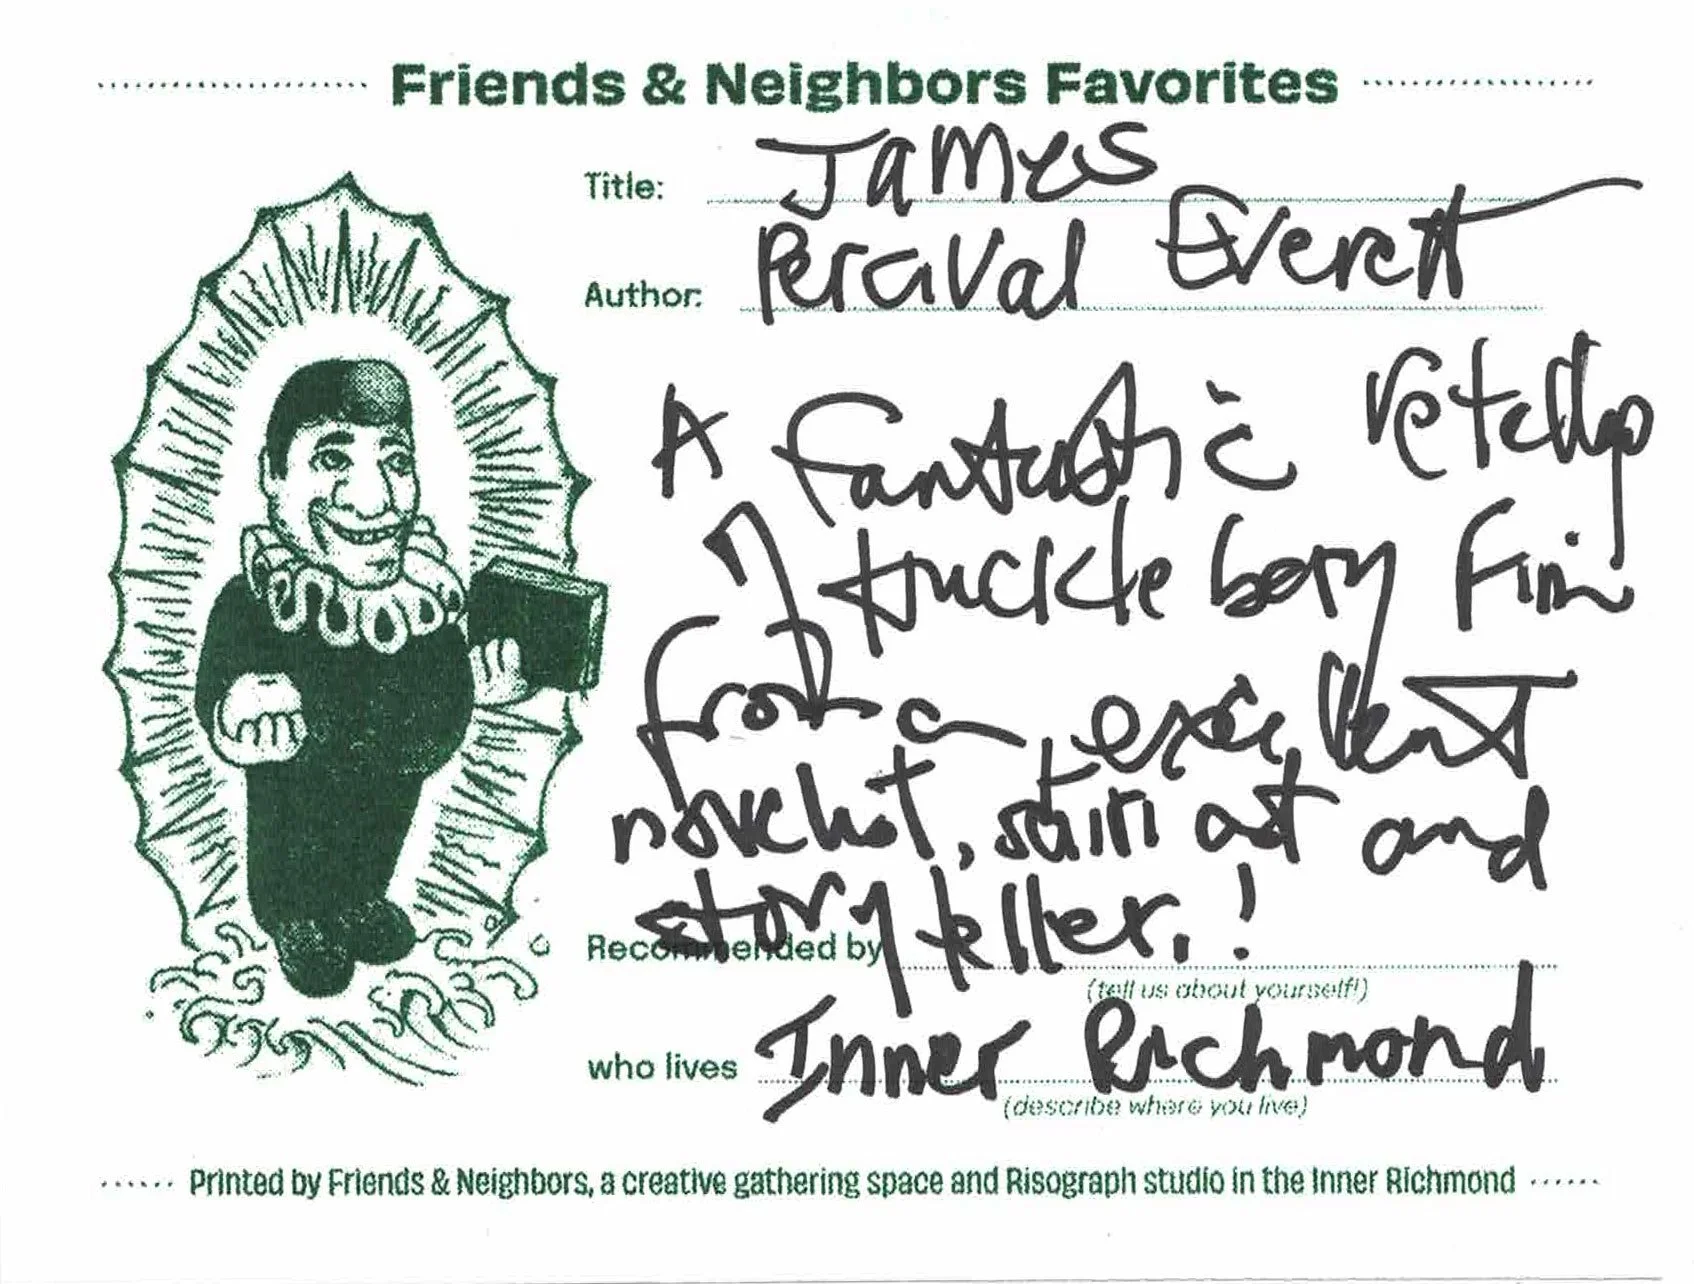 Friends & Neighbors Favorites
Title: James
Author: Percival Everett
A fantastic retelling
of Huckleberry Finn
from an excellent
novelist, satirist and
story teller.!
Recommended by
(tell us about yourself!)
who lives Inner Richmond
(describe where you live)
Printed by Friends & Neighbors, a creative gathering space and Risograph studio in the Inner Richmond